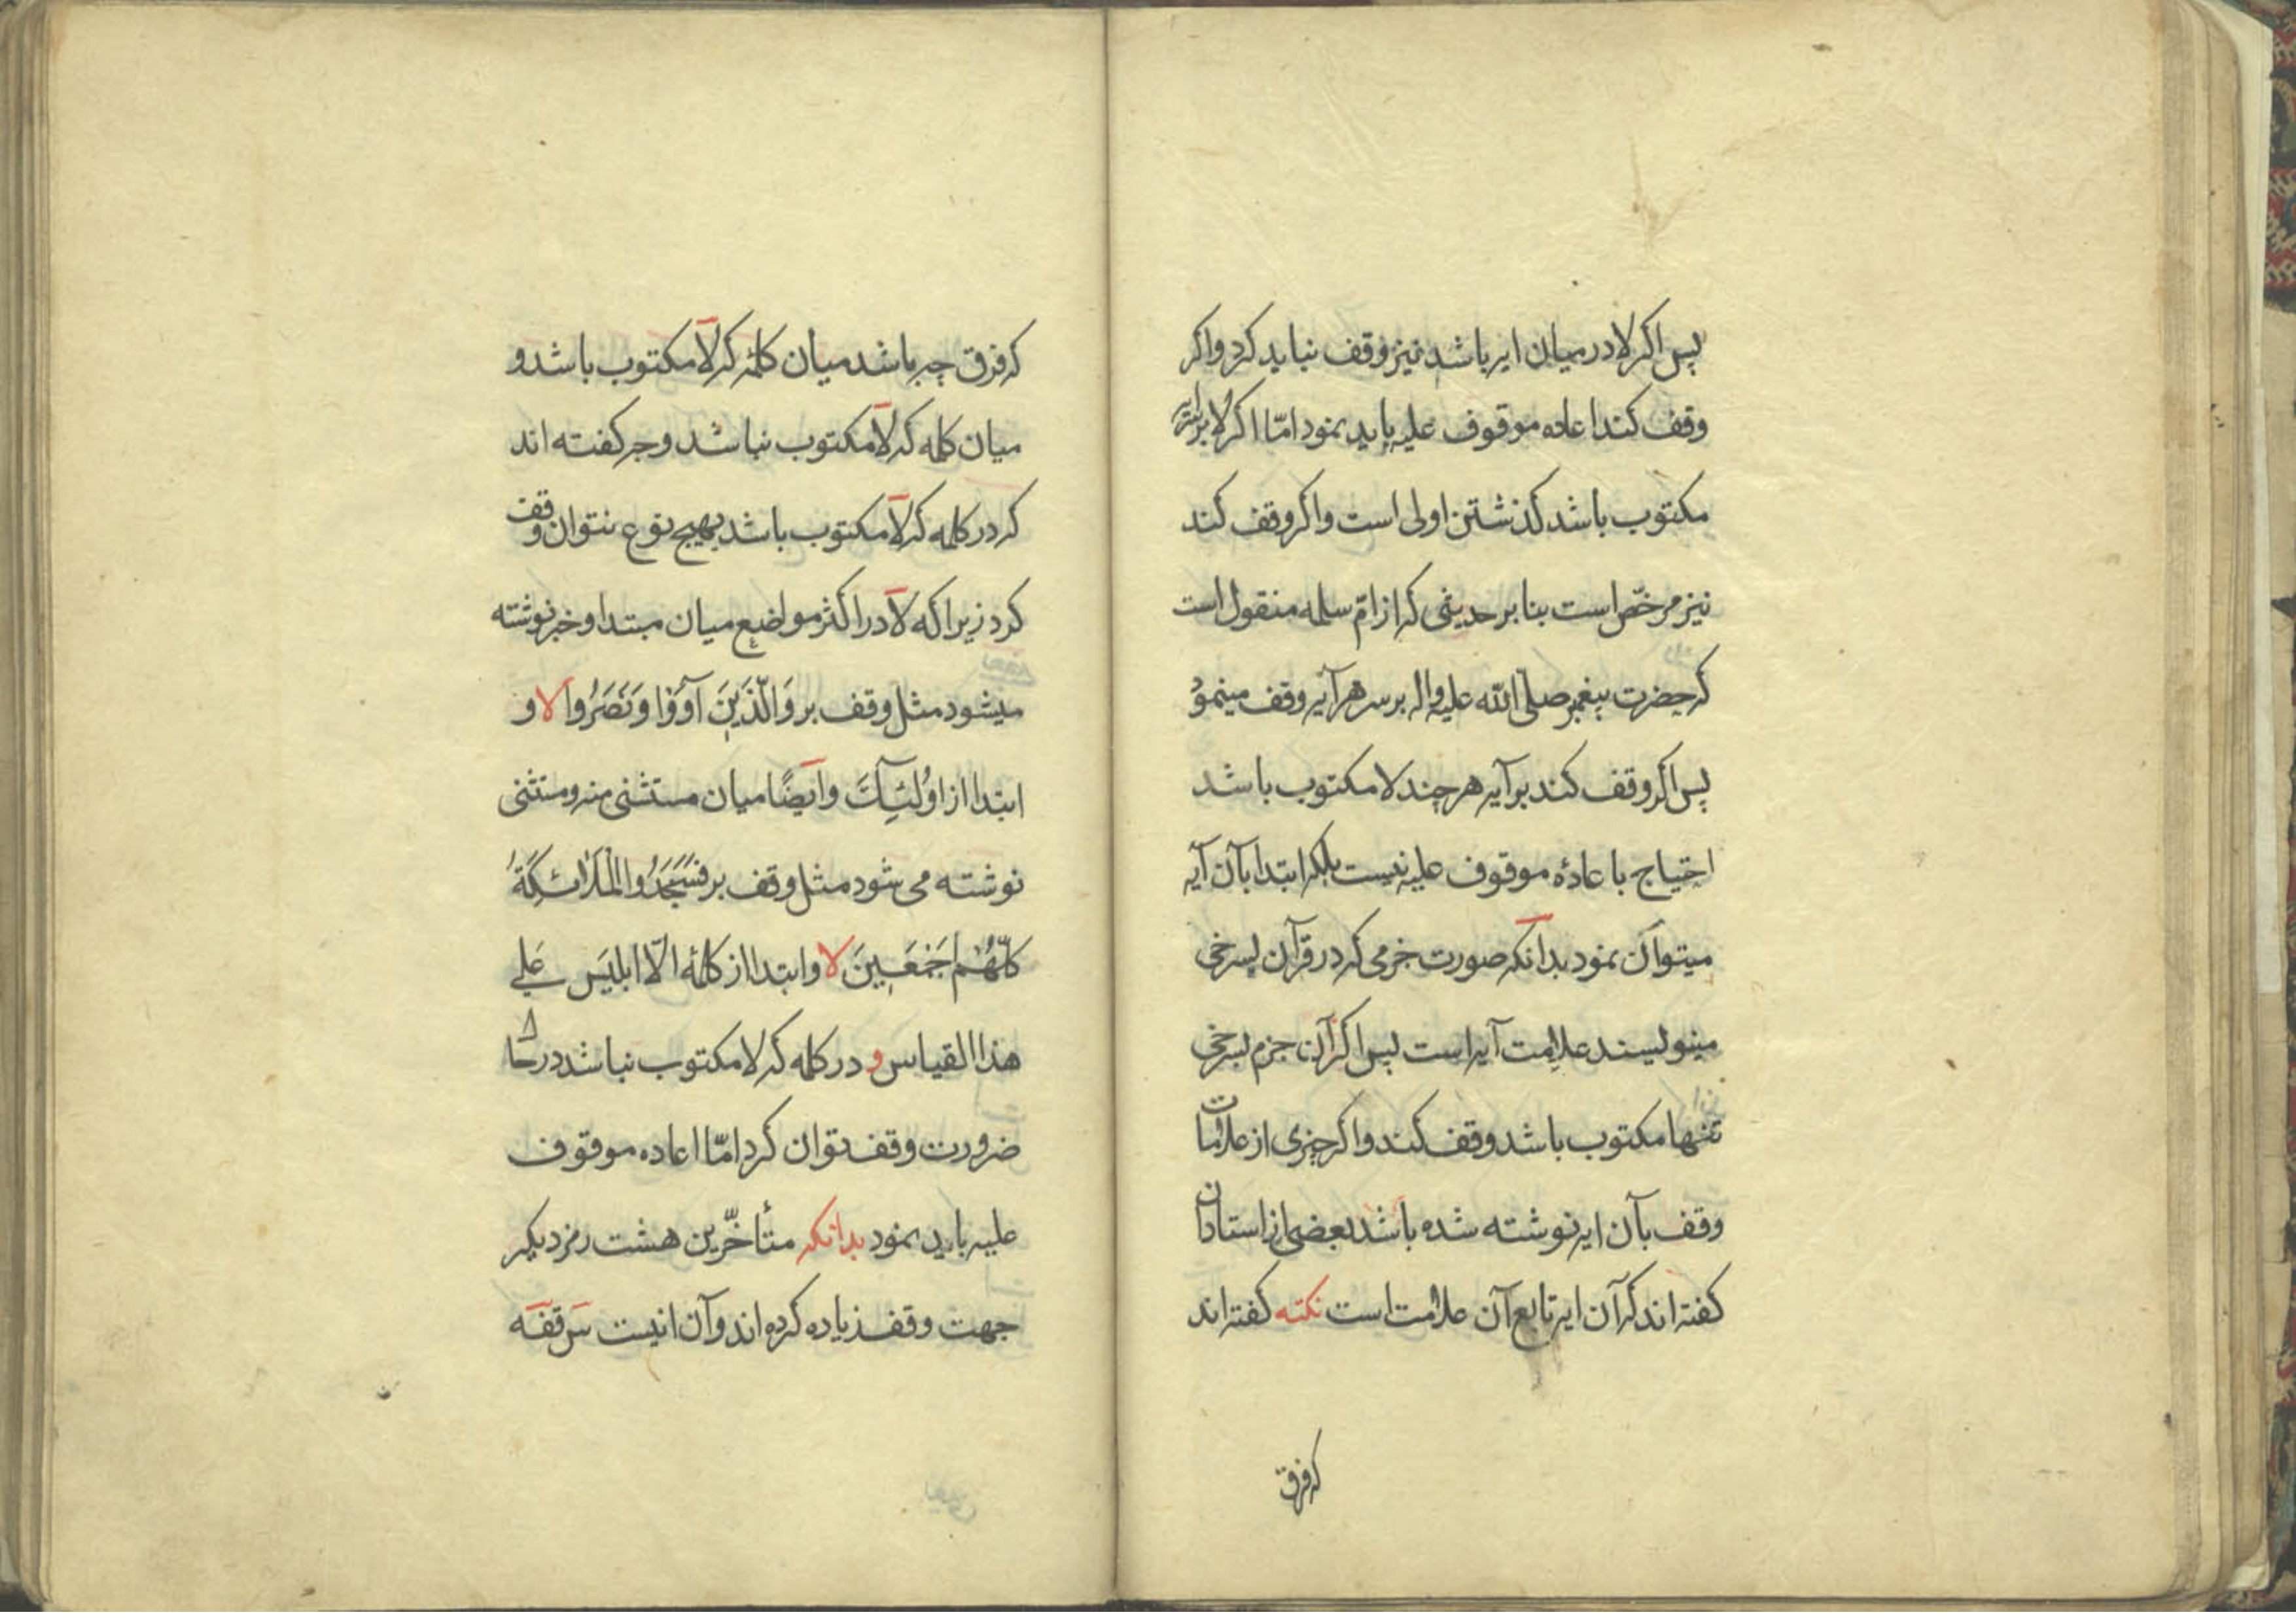 پس اکر لا در میان ایه باشد نیز وقف نباید کرد واکر
وقف کند اعاده موقوف علیه باید نمود امّا اکر لا بر سر ایه
مکتوب باشد کذشتن اولی است واکر وقف کند
نیز مرخّص است بنا بر حدیثی که از امّ سلمه منقول است
که حضرت پیغمبر صلّی الله علیه واله بر سر هر آیه وقف مینمود
پس اکر وقف کند بر آیه هر چند لا مکتوب باشد
احتیاج با عادۀ موقوف علیه نیست بلکه ابتدا بآن آیه
میتوان نمود بدانکه صورت خرمی که در قرآن بسرخی
مینویسند علامت آیه است پس اکر آن جزم بسرخی
تنها مکتوب باشد وقف کند واکر چیزی از علامات
وقف بآن ایه نوشته شده باشد بعضی از استادان
کفته اند که آن ایه تابع آن علامت است نکته کفته اند
که فرق
که فرق چه باشد میان کلمۀ که لا مکتوب باشد و
میان کلمه که لا مکتوب نباشد وجه کفته اند
که در کلمه که لا مکتوب باشد بهیچ نوع نتوان وقف
کرد زیرا که لا در اکثر مواضع میان مبتدا و خبر نوشته
میشود مثل وقف بر وَالَّذَینَ آوَوْا وَنَصَرُوا لا و
ابتدا از اوُلئِکَ وایضًا میان مستثنی منه ومستثنی
نوشته می شود مثل وقف بر فَسَجَدُوا الْمَلَائِکَةُ
کُلُّهُمْ اَجْمَعِینَ لا وابتدا از کلمۀ الّا ابلیَس عَلی
هذا القیاس و در کلمه که لا مکتوب نباشد در حال
ضرورت وقف توان کرد امّا اعاده موقوف
علیه باید نمود بدانکه متأخّرین هشت رمز دیکر
جهت وقف زیاده کرده اند وآن اینست س قفه